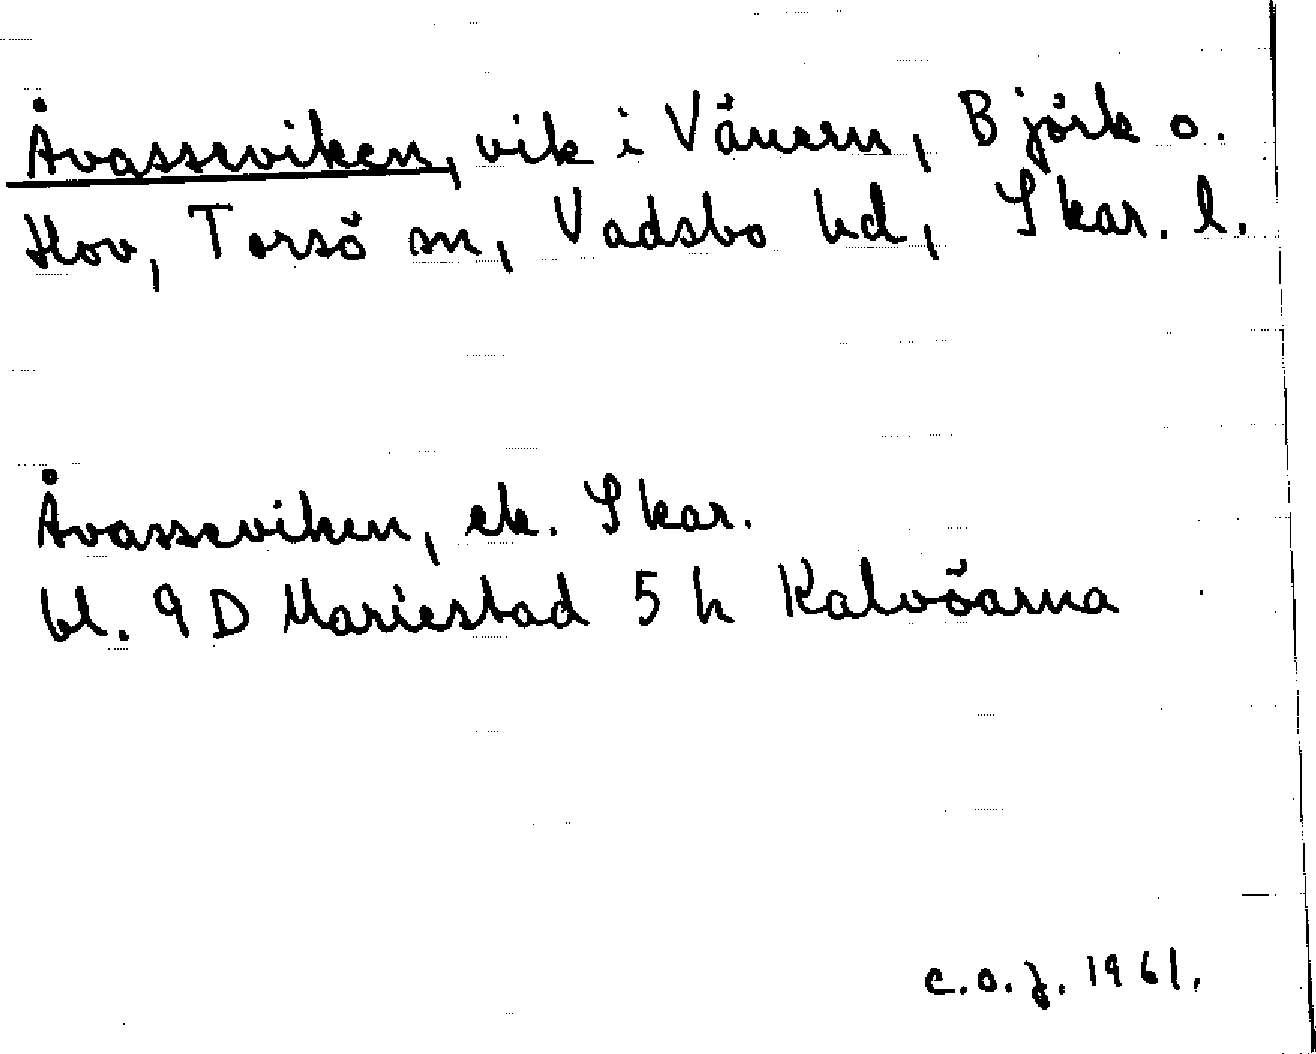 Åvasseviken, vik i Vänern, Björk o.
Hov, Torsö sn, Vadsbo hd, Skar. l.
Åvasseviken, ek. Skar.
bl. 9 D Mariestad 5 h Kalvöarna
c.o.j. 1961.